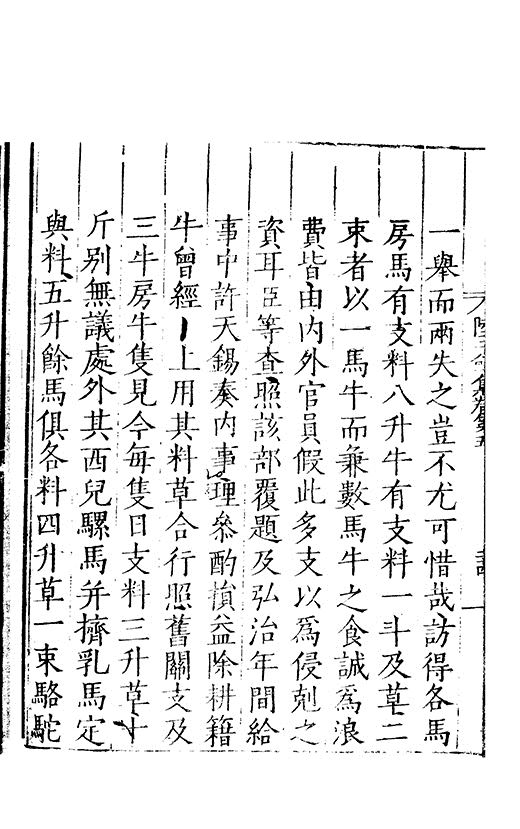 一舉而兩失之豈不尤可惜哉訪得各馬
房馬有支料八升牛有支料一斗及草二
束者以一馬牛而兼數馬牛之食誠爲浪
費皆由內外官員假此多支以爲侵剋之
資耳臣等查照該部覆題及弘治年間給
事中許天錫奏內事理叅酌損益除耕籍
牛曾經上用其料草合行照舊關支及
三牛房牛隻見今每隻日支料三升草十
斤別無議處外其西兒騾馬并擠乳馬定
與料五升餘馬俱各料四升草一束駱駝